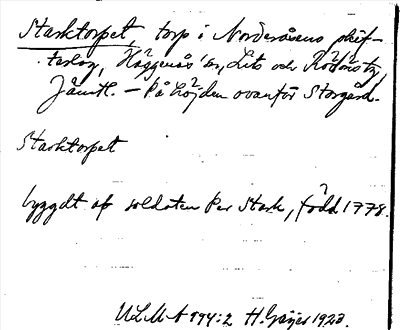 Starktorpet, torp i Norderåsens skif-
terlag, Häggenås sn, Lits och Rödöns tg,
Jämtl. – På höjden ovanför Storgård.
Starktorpet
byggdt af soldaten Per Stark, född 1778.
ULMA 994:2 H. Geijer 1923.